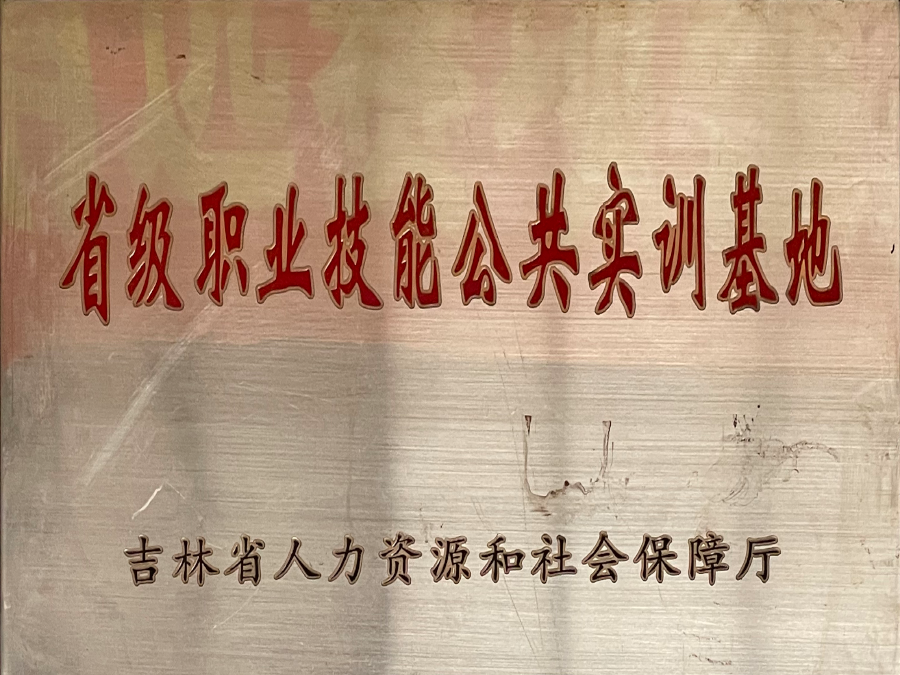 省级职业技能公共实训基地
吉林省人力资源和社会保障厅